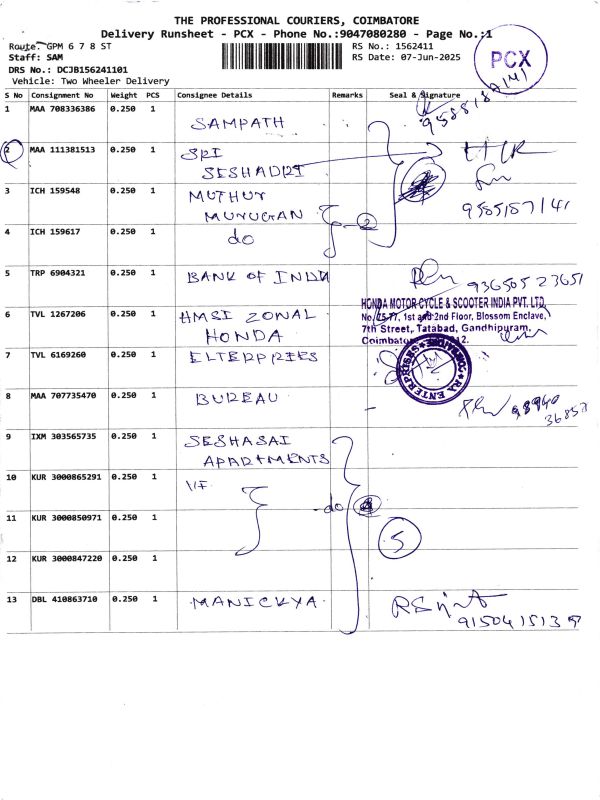 THE PROFESSIONAL COURIERS, COIMBATORE
Delivery Runsheet - PCX - Phone No.:9047080280 - Page No.:1
Route: GPM 6 7 8 ST
RS No.: 1562411
Staff: SAM
RS Date: 07-Jun-2025
DRS No.: DCJB156241101
Vehicle: Two Wheeler Delivery
PCX
S No Consignment No Weight PCS Consignee Details Remarks Seal & Signature
1 MAA 708336386 0.250 1 SAMPATH
2 MAA 111381513 0.250 1 SRI
SESHADRI
3 ICH 159548 0.250 1 MUTHUR
MURUGAN 2
4 ICH 159617 0.250 1 do
5 TRP 6904321 0.250 1 BANK OF INDIA
HONDA MOTOR CYCLE & SCOOTER INDIA PVT. LTD.
6 TVL 1267206 0.250 1 HMSI ZONAL
HONDA
1st and 2nd Floor, Blossom Enclave,
7th Street, Tatabad, Gandhipuram,
7 TVL 6169260 0.250 1
8 MAA 707735470 0.250 1 BUREAU
9 IXM 303565735 0.250 1 SESHASAI
APARTMENTS
10 KUR 3000865291 0.250 1
do
11 KUR 3000850971 0.250 1
5
12 KUR 3000847220 0.250 1
13 DBL 410863710 0.250 1 MANICKYA